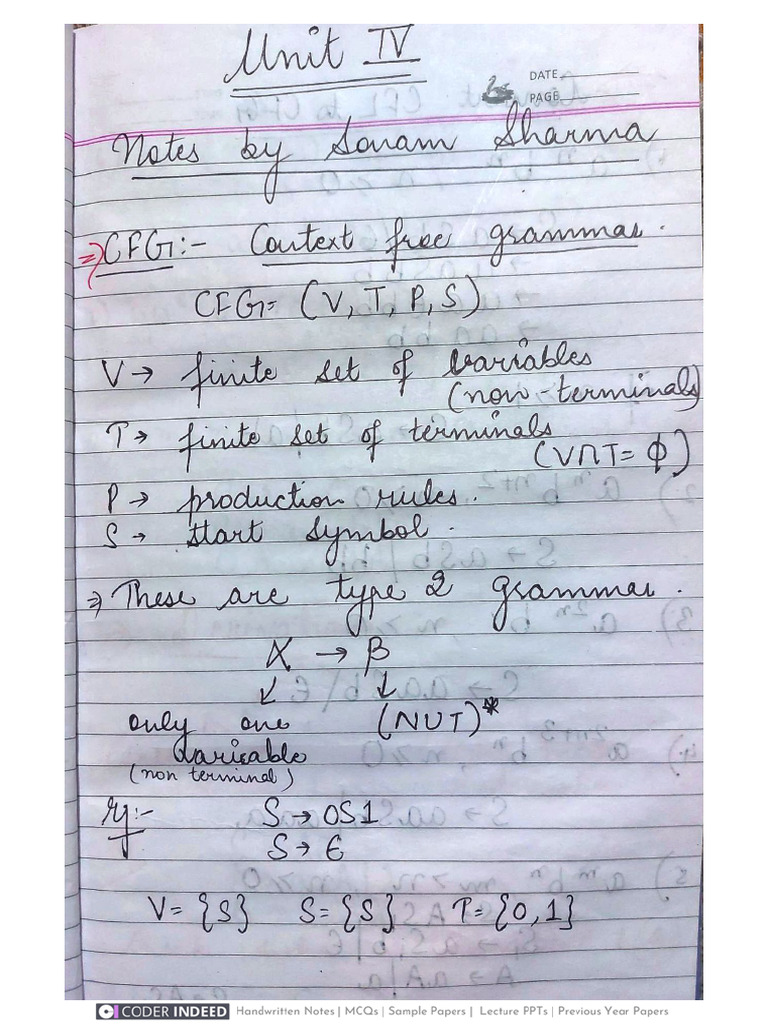 Unit IV
DATE
PAGE
Notes by Sonam Sharma
⇒ CFG:- Context free grammar.
CFG= (V, T, P, S)
V → finite set of variables
(non-terminals)
T → finite set of terminals
(V∩T= ϕ)
P → production rules.
S → start symbol.
⇒ These are type 2 grammar.
α → β
↓ ↓
only one (NUT)*
variable
(non terminal)
eg:-
S → 0S1
S → ϵ
V= {S} S= {S} T= {0,1}
CODER INDEED Handwritten Notes | MCQs | Sample Papers | Lecture PPTs | Previous Year Papers